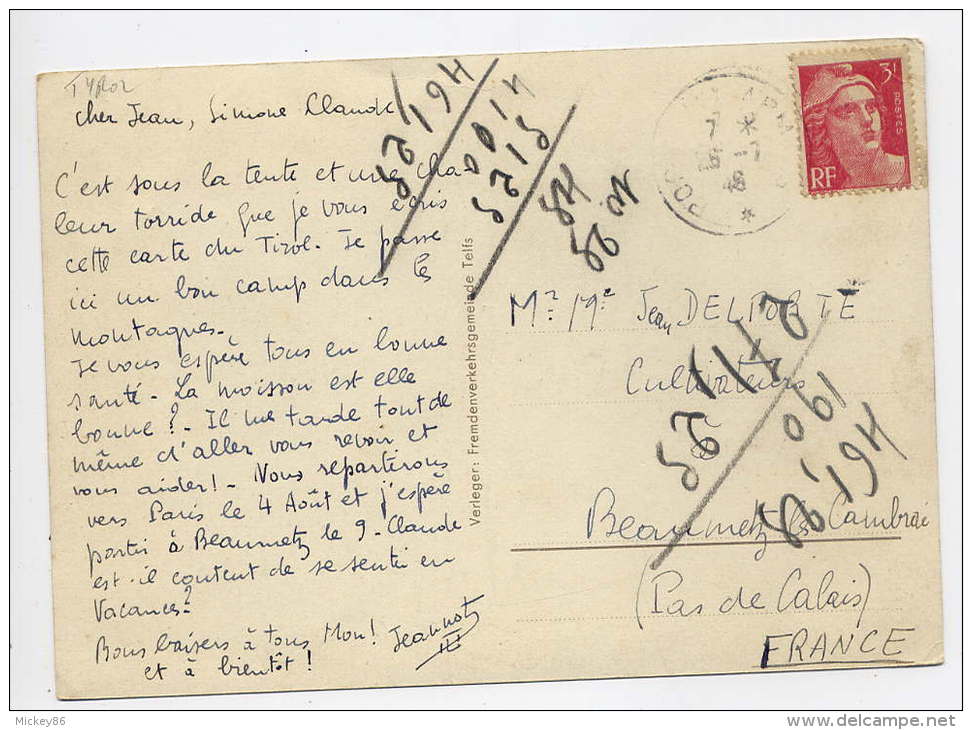 TYROL
cher Jean, Simone Claude
C'est sous la tente et une cha
leur torride que je vous écris
cette carte du Tirol. Je passe
ici un bon camp dans les
montagnes.
Je vous espère tous en bonne
santé - La moisson est elle
bonne ? - Il me tarde tout de
même d'aller vous revoir et
vous aider ! - Nous repartirons
vers Paris le 4 Août et j'espère
partir à Beaumetz le 9 - Claude
est-il content de se sentir en
Vacances ?
Bons baisers à tous Mon !
et à bientôt !
Jeannot
Verleger: Fremdenverkehrsgemeinde Telfs
3F
POSTES
RF
Jean DELPORTE
Cultivateurs
Beaumetz les Cambrai
(Pas de Calais)
FRANCE
Mickey86
www.delcampe.net